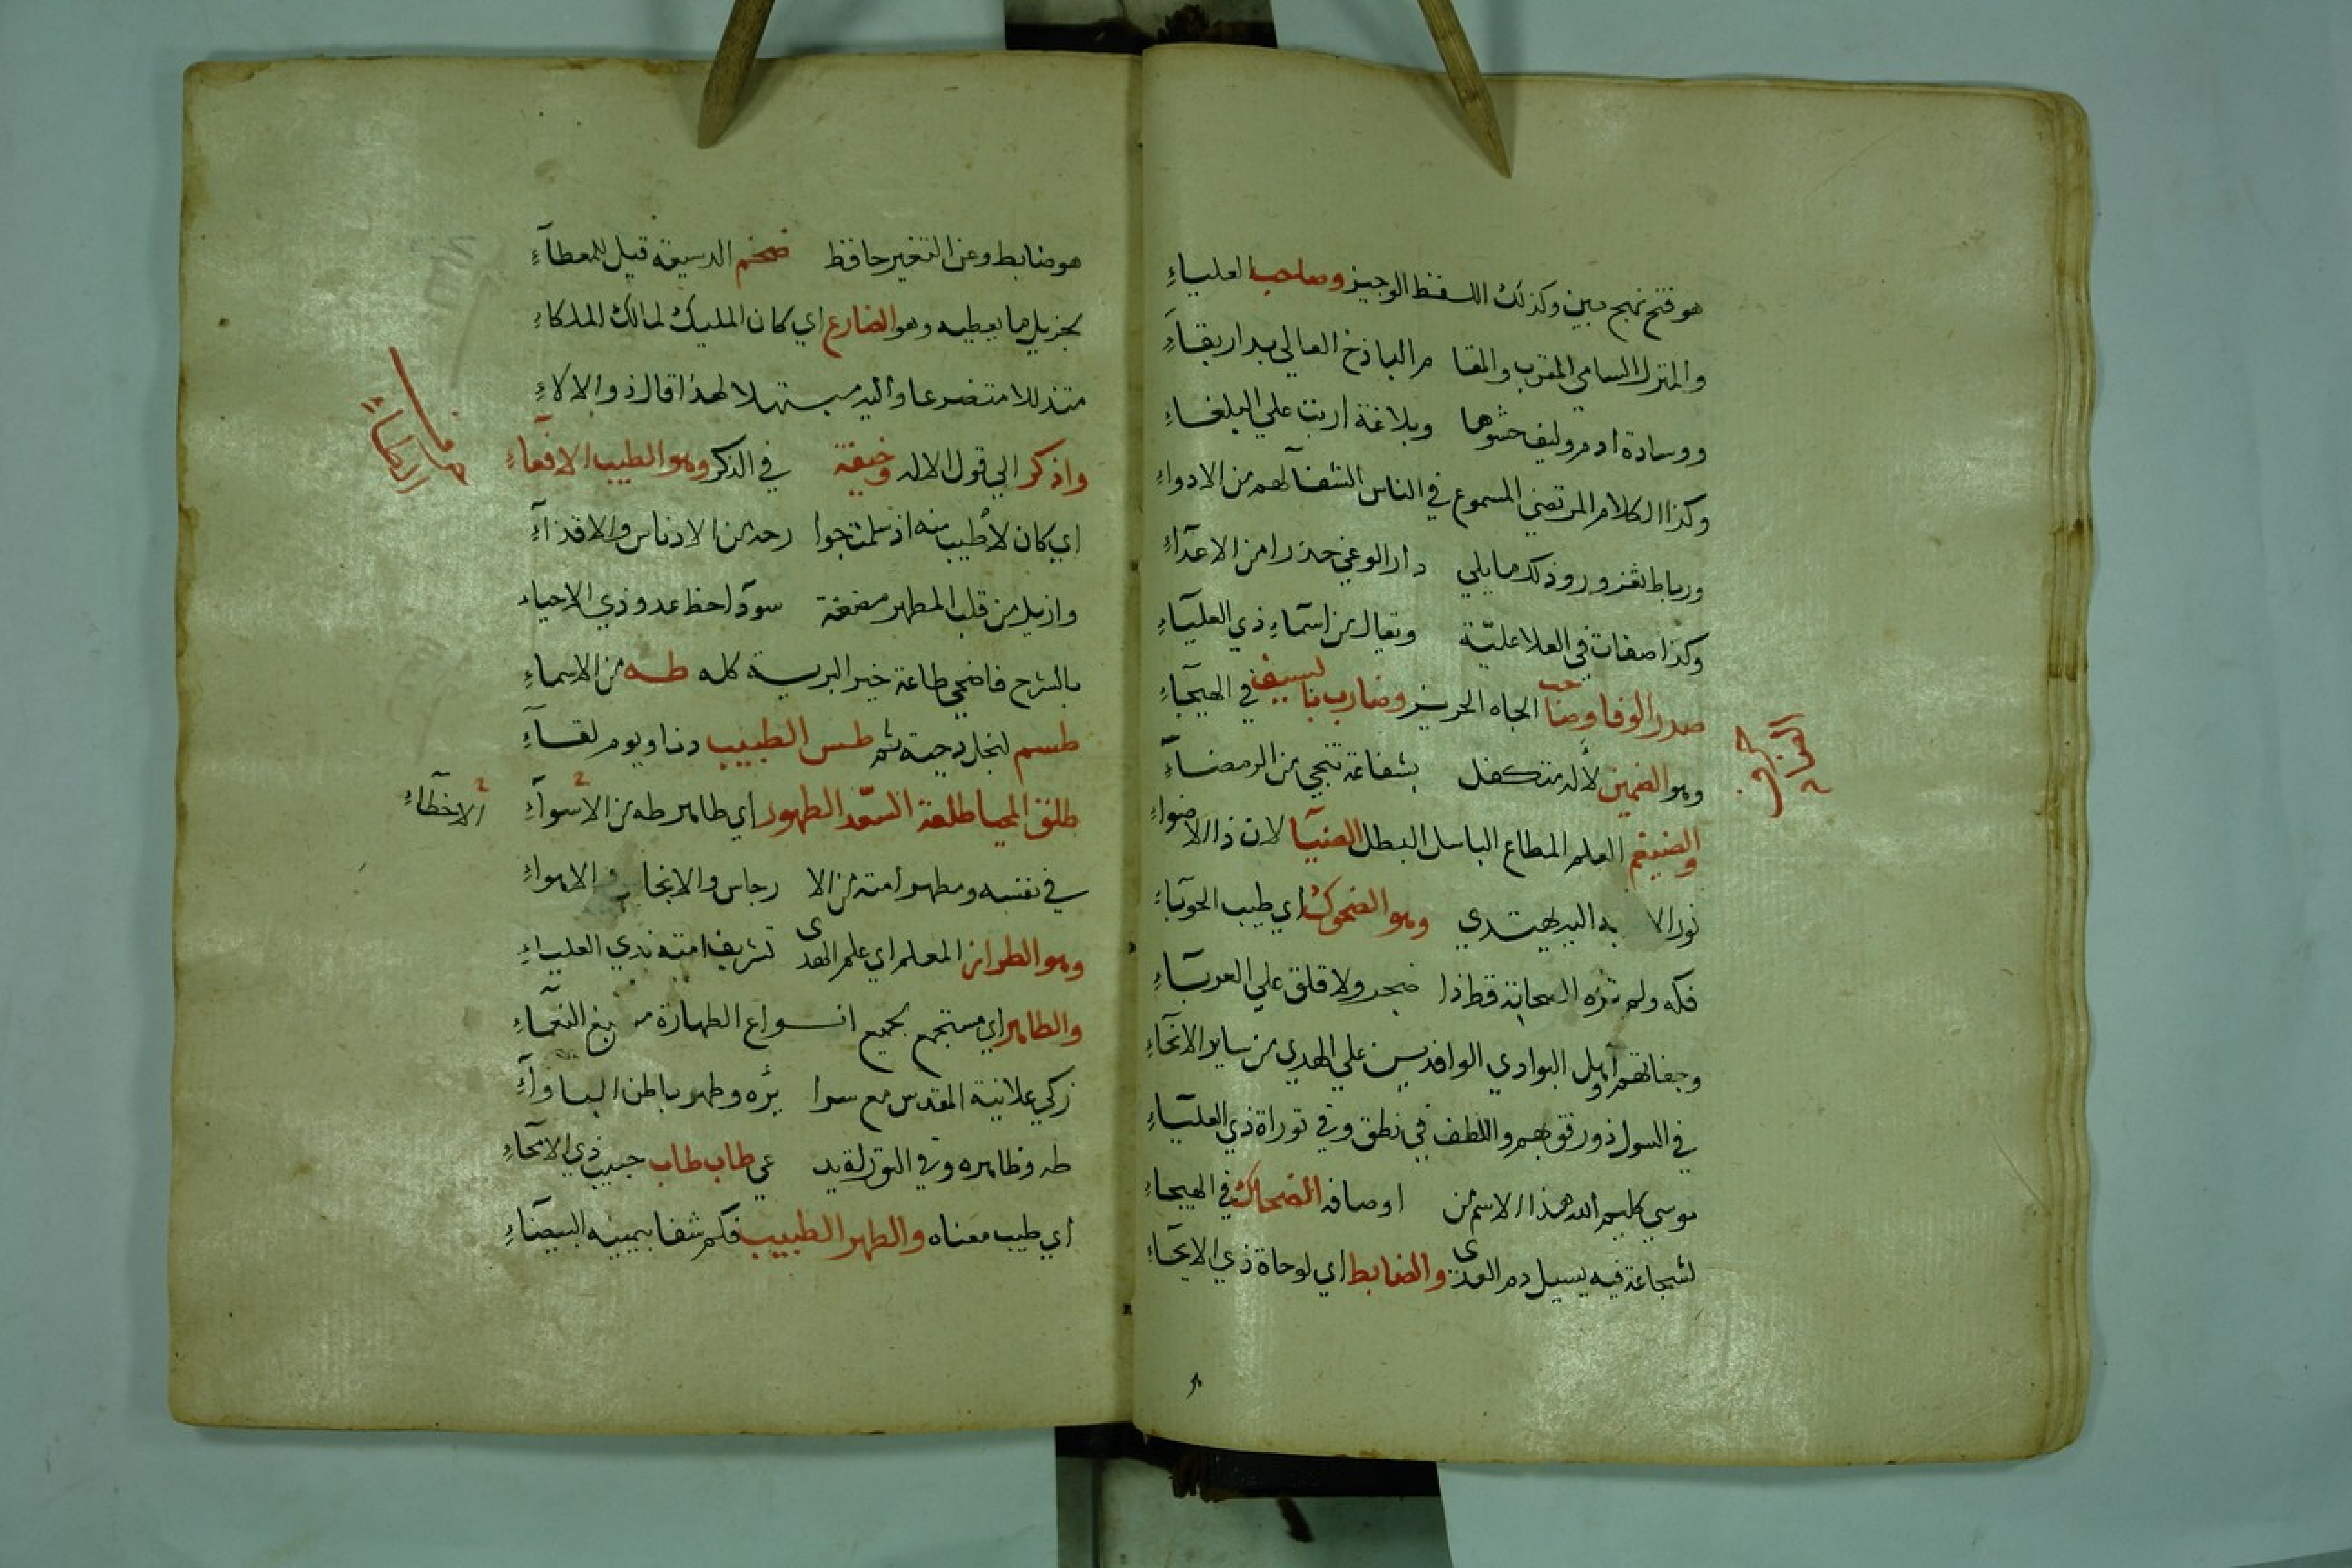 هو فتح نهج مبين وكذلك اللفظ الوجيز وصاحب العلياءِ
والمنزل السامي المقرب والمقا م الباذخ العالي بدار بقاءِ
ووسادة ادم وليف حشوها وبلاغة اربت علي البلغاءِ
وكذا الكلام المرتضي المسموع في الناس الشفآ لهم من الادواءِ
ورباط ثغز وروذلك مايلي دار الوغي حذرا من الاعدآءِ
وكذا صفات في العلا عليّة وتعال من اسمآءِ ذي العليآءِ
صدر الوفا وصاحب الجاه الحريز وضارب بالسيف في الهيجآءِ
وهو الضمين لأنه متكفل بشفاعة تنجي من الرمضآءِ
والضيغم العلم المطاع الباسل البطل الضيآ لان ذا الاضواءِ
نور الا به اليه يهتدي وهو الضحوك اي طيب الحوبآءِ
فكه ولم تره الصحابة قط اذا ضجر ولا قلق علي الغربآءِ
وجفاتهم اهل البوادي الوافدين علي الهدي من ساير الانحآءِ
في السول ذو رفق بهم واللطف في نطق وفي توراة ذي العليآءِ
موسي كليم الله هذا الاسم من اوصافه الضحاك في الهيجاءِ
لشجاعة فيه يسيل دم العدى والضابط اي لوحاة ذي الايحآءِ
هو ضابط وعن التغير حافظ ضخم الدسيعة قيل للمعطآءِ
بجزيل ما يعطيه وهو الضارع اي كان المليك لمالك الملكاءِ
متذللا متضرعا واليه مبتهلا لهذا قال ذو الالاءِ
واذكر الي قول الاله وخيفة في الذكر وهو الطيب الافعآءِ
اي كان لأطيب منه اذ سلمت جوا رحه من الادناس والاقذآءِ
وازيل من قلب المطهر مضغة سودآ حظ عدو ذي الاحياء
بالشرح فاضحي طاعة خير البرية كله طه من الاسماءِ
طسم لنجل دحية ثم طس الطبيب دنا ويوم لقآءِ
طلق المحيا طلعة السعد الطهور اي طاهر طه من الاسوآءِ
الاخطآءِ
في نفسه ومطهر امته من الا رجاس والانجا والاهواءِ
وهو الطراز المعلم اي علم الهدى تشريف امته بذي العلياءِ
والطاهر اي مستجمع لجميع انواع الطهارة النعمآءِ
زكي علانية المقدس مع سرا ئره وطهر باطن
طه وظاهره وفي التوراة يد عي طاب طاب حبيب ذي الانحآءِ
اي طيب معناه والطهر الطبيب فكم شفا بيمينه البيضآءِ